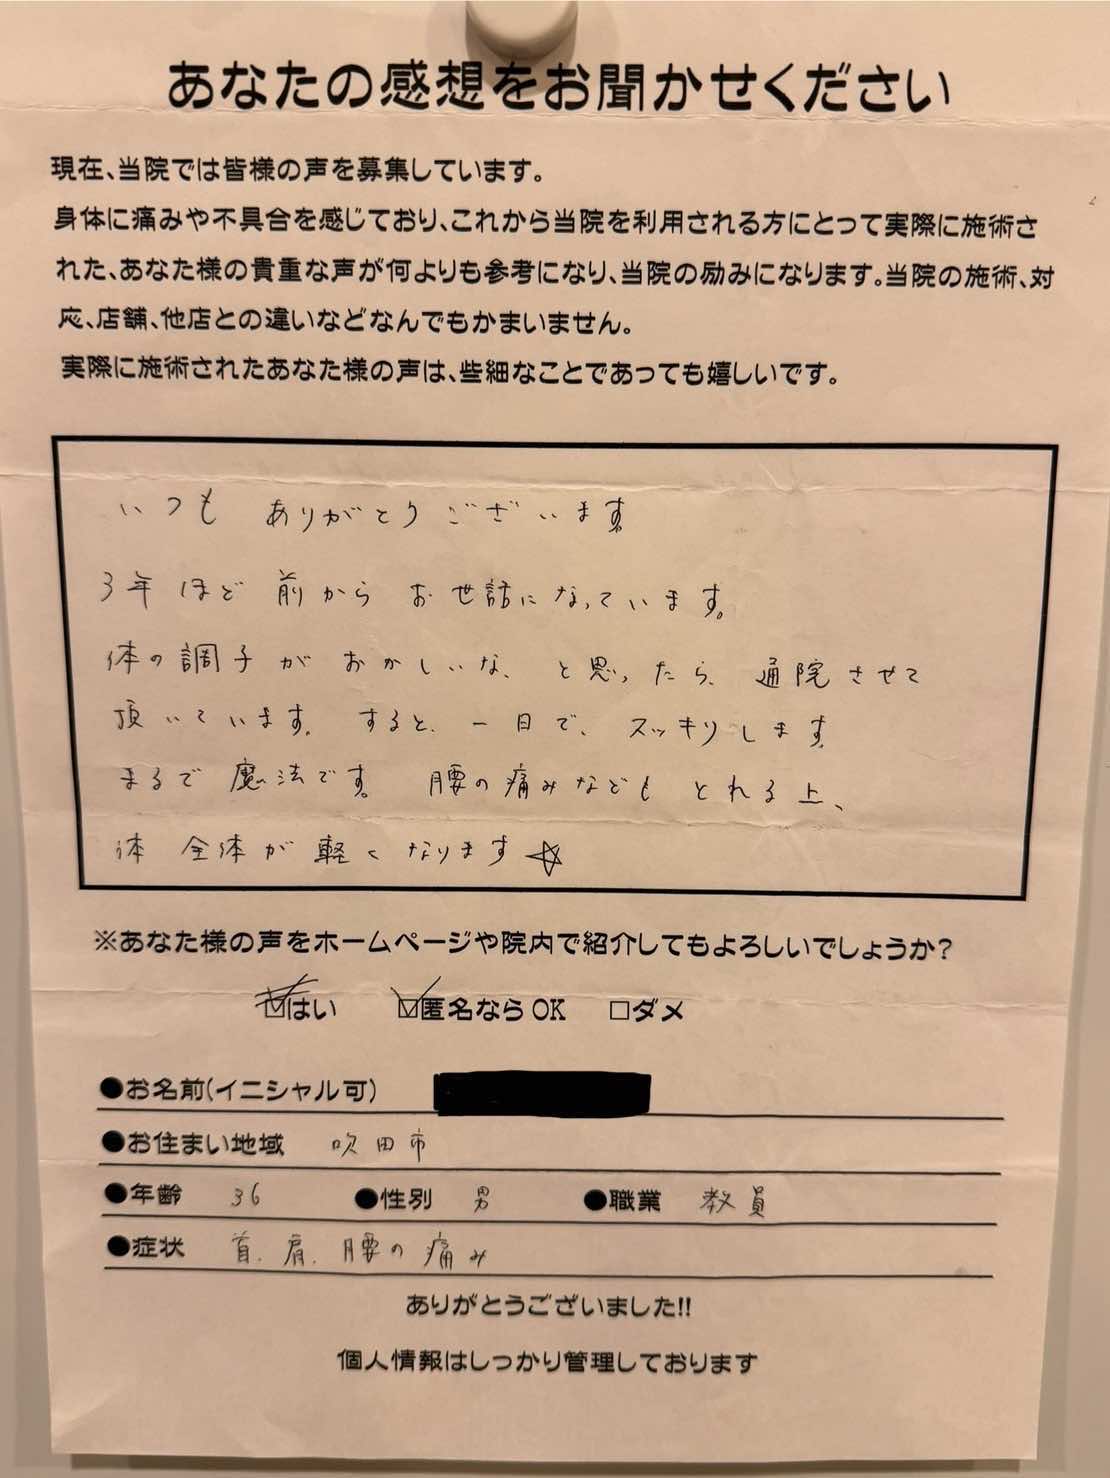 あなたの感想をお聞かせください
現在、当院では皆様の声を募集しています。
身体に痛みや不具合を感じており、これから当院を利用される方にとって実際に施術さ
れた、あなた様の貴重な声が何よりも参考になり、当院の励みになります。当院の施術、対
応、店舗、他店との違いなどなんでもかまいません。
実際に施術されたあなた様の声は、些細なことであっても嬉しいです。
いつも ありがとうございます
3年ほど前から お世話になっています。
体の調子が おかしいな、と思ったら、通院させて
頂いています。すると、一日で、スッキリします
まるで魔法です。腰の痛みなども とれる上、
体 全体が軽くなります☆
※あなた様の声をホームページや院内で紹介してもよろしいでしょうか?
☑はい ☑匿名ならOK □ダメ
●お名前(イニシャル可)
●お住まい地域 吹田市
●年齢 36 ●性別 男 ●職業 教員
●症状 首、肩、腰の痛み
ありがとうございました!!
個人情報はしっかり管理しております